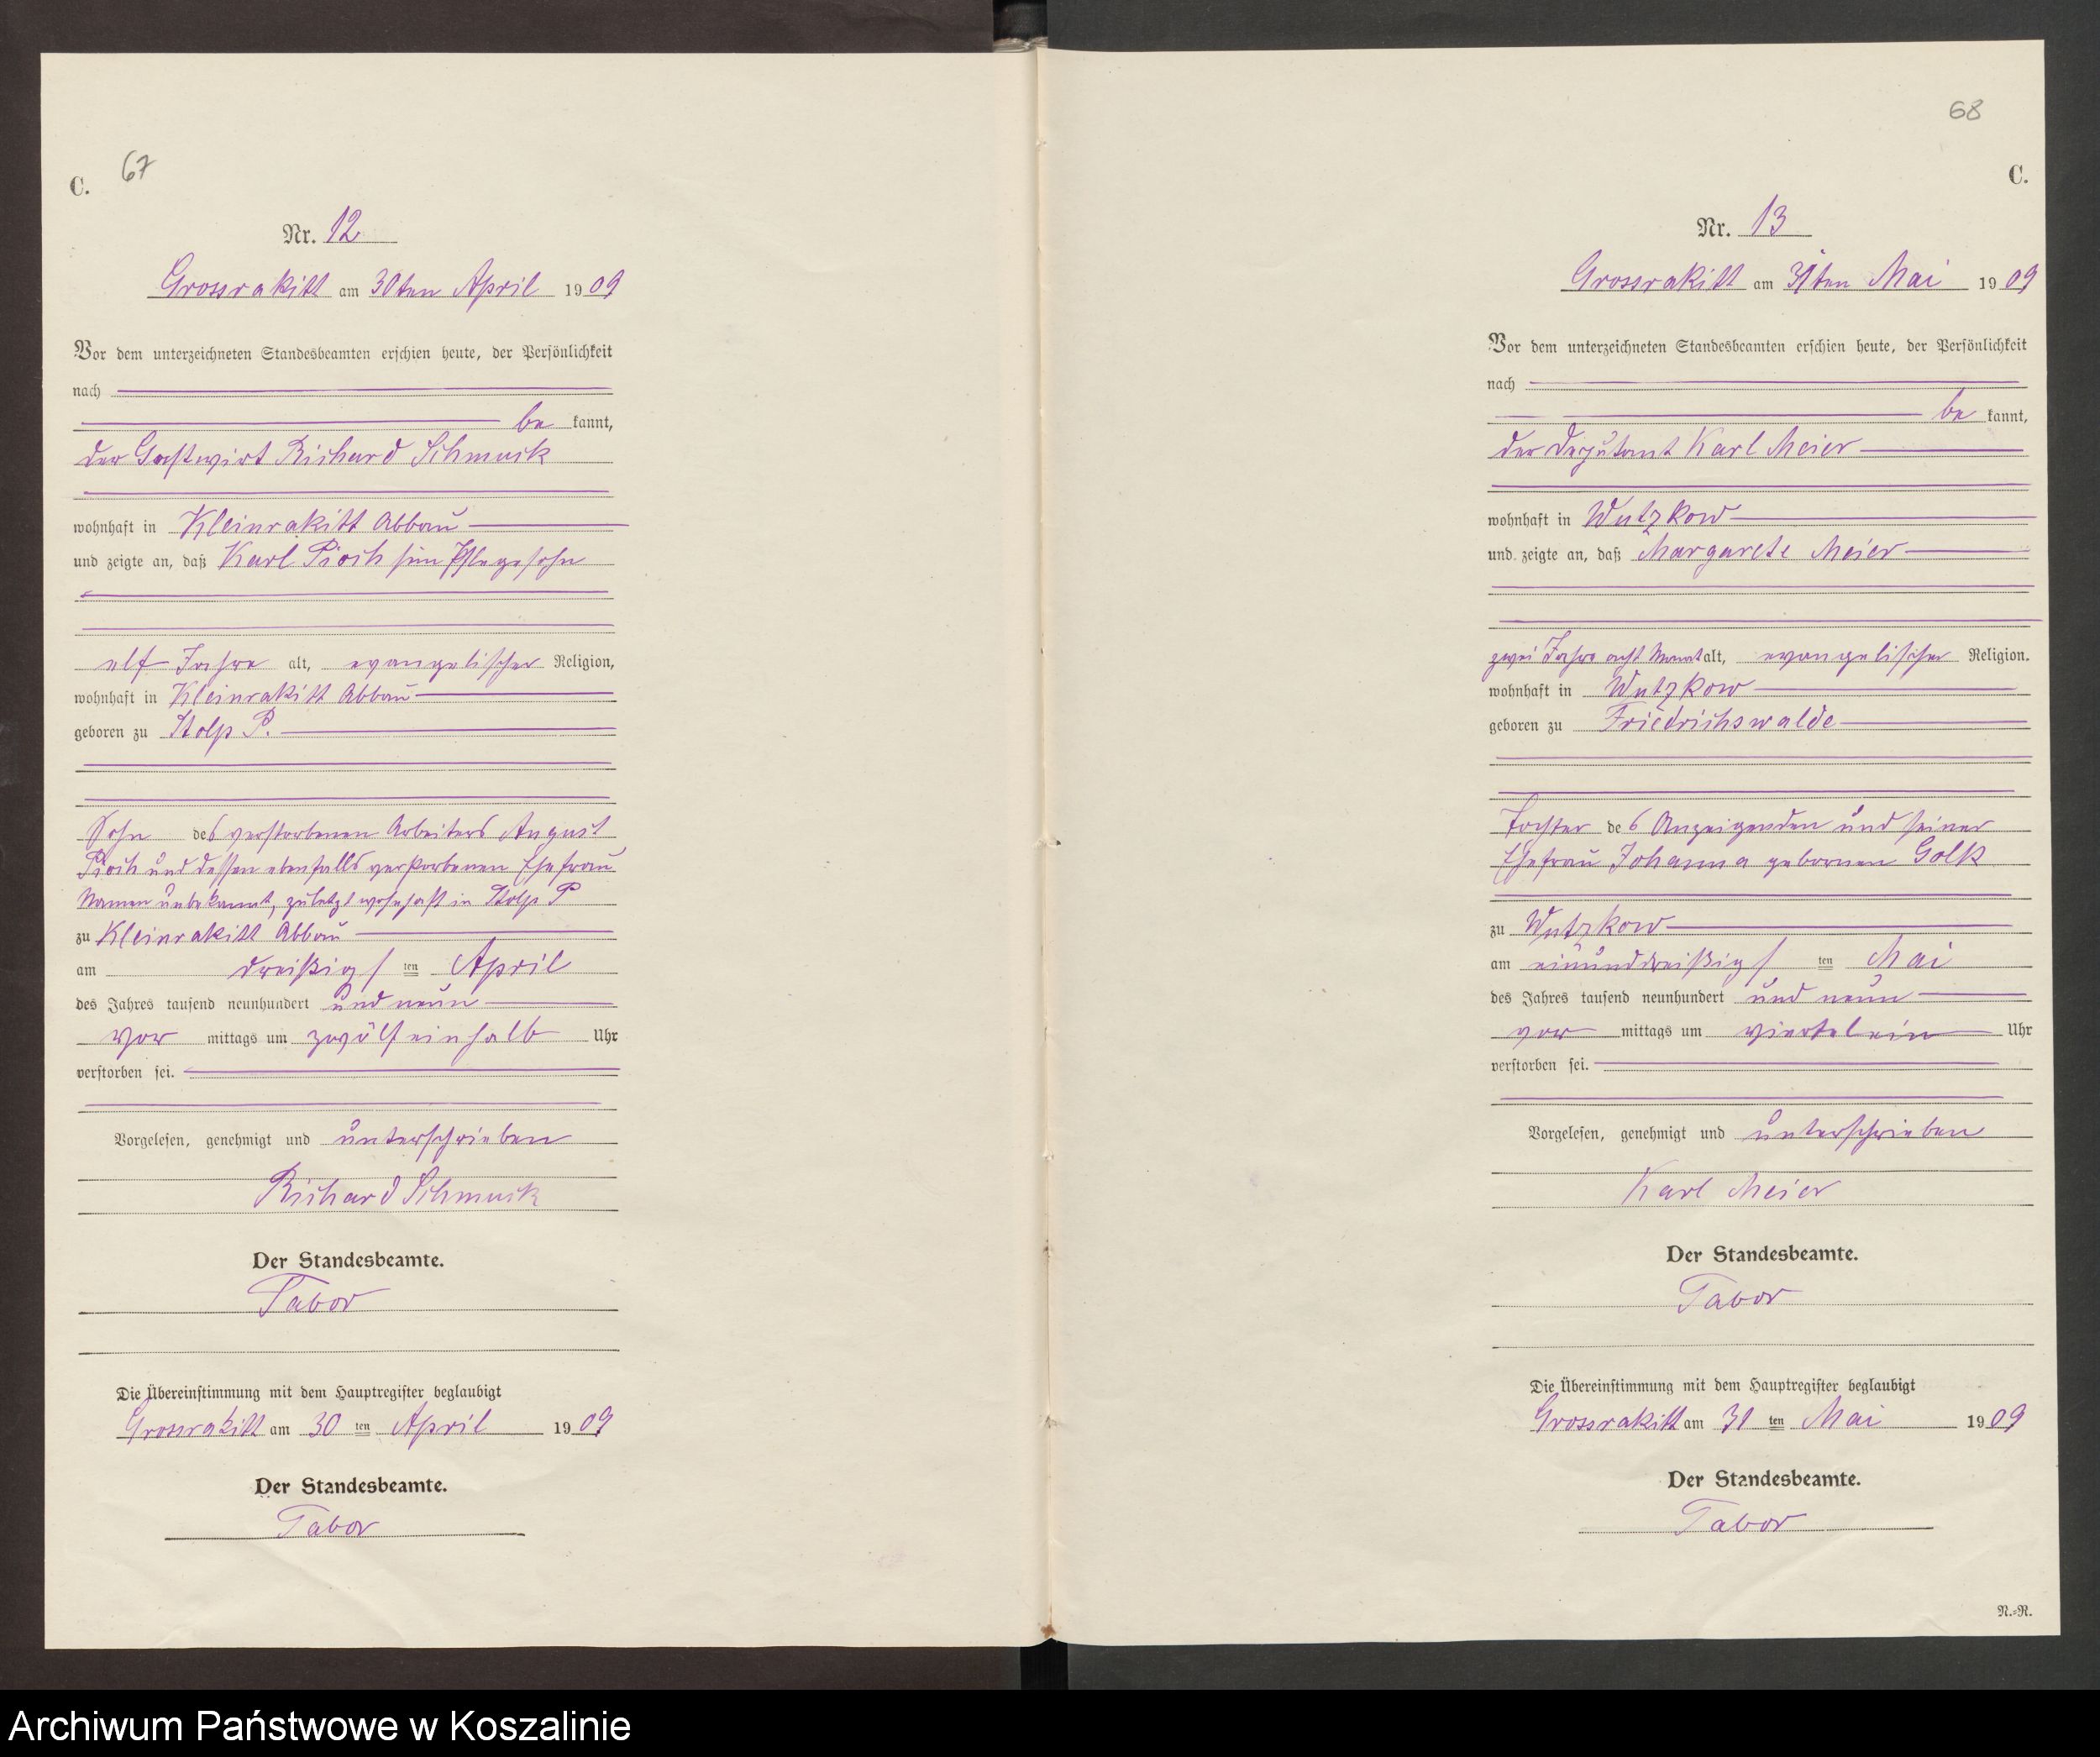 67
C.
Nr. 12
Grossrakitt am 30ten April 1909
Vor dem unterzeichneten Standesbeamten erschien heute, der Persönlichkeit
nach
be kannt,
der Gastwirt Richard Schmuck
wohnhaft in Kleinrakitt Abbau
und zeigte an, daß Karl Pioch sein Pflegesohn
elf Jahre alt, evangelischer Religion,
wohnhaft in Kleinrakitt Abbau
geboren zu Stolp P.
Sohn des verstorbenen Arbeiters August
Pioch und dessen ebenfalls verstorbenen Ehefrau
Namen unbekannt, zuletzt wohnhaft in Stolp P
zu Kleinrakitt Abbau
am dreißigsten April
des Jahres tausend neunhundert und neun
Vor mittags um zwölf einhalb Uhr
verstorben sei.
Vorgelesen, genehmigt und unterschrieben
Richard Schmuck
Der Standesbeamte.
Tabor
Die Übereinstimmung mit dem Hauptregister beglaubigt
Grossrakitt am 30 ten April 1909
Der Standesbeamte.
Tabor
68
C.
Nr. 13
Grossrakitt am 31ten Mai 1909
Vor dem unterzeichneten Standesbeamten erschien heute, der Persönlichkeit
nach
be kannt,
der Deputant Karl Meier
wohnhaft in Wutzkow
und zeigte an, daß Margarete Meier
zwei Jahre acht Monat alt, evangelischer Religion.
wohnhaft in Wutzkow
geboren zu Friedrichswalde
Tochter des Anzeigenden und seiner
Ehefrau Johanna gebornen Golk
zu Wutzkow
am einunddreißigsten Mai
des Jahres tausend neunhundert und neun
vor mittags um viertel ein Uhr
verstorben sei.
Vorgelesen, genehmigt und unterschrieben
Karl Meier
Der Standesbeamte.
Tabor
Die Übereinstimmung mit dem Hauptregister beglaubigt
Grossrakitt am 31 ten Mai 1909
Der Standesbeamte.
Tabor
N.-N.
Archiwum Państwowe w Koszalinie